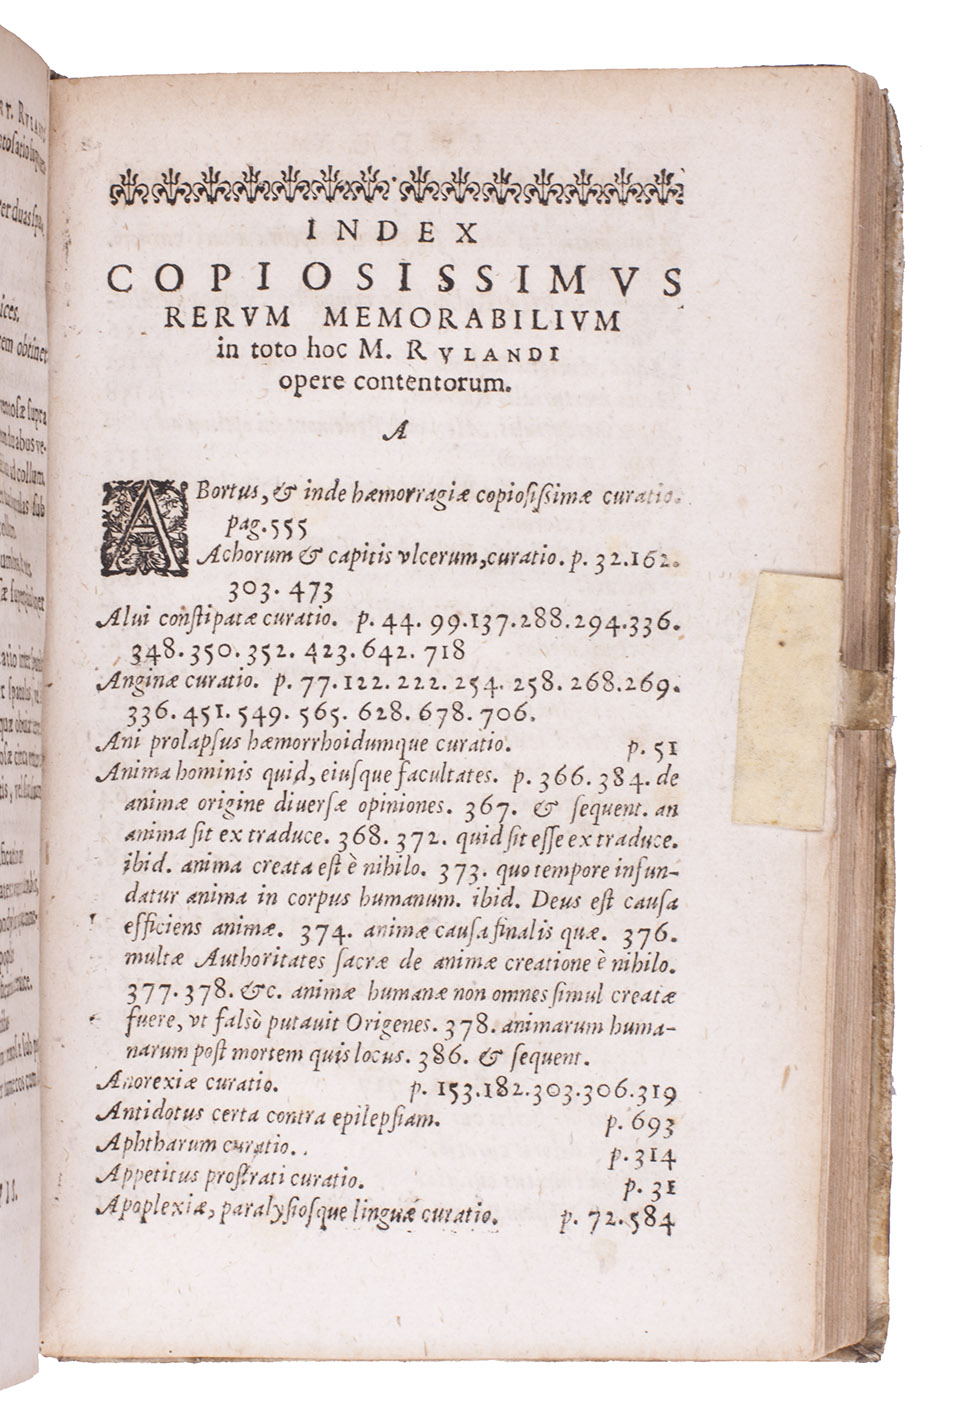 INDEX
COPIOSISSIMVS
RERVM MEMORABILIVM
in toto hoc M. RVLANDI
opere contentorum.
A
ABortus, & inde hæmorragiæ copiosißimæ curatio.
pag. 555
Achorum & capitis vlcerum, curatio. p. 32. 162.
303. 473
Alui constipatæ curatio. p. 44. 99. 137. 288. 294. 336.
348. 350. 352. 423. 642. 718
Anginæ curatio. p. 77. 122. 222. 254. 258. 268. 269.
336. 451. 549. 565. 628. 678. 706.
Ani prolapsus hæmorrhoidumque curatio. p. 51
Anima hominis quid, eiusque facultates. p. 366. 384. de
animæ origine diuersæ opiniones. 367. & sequent. an
anima sit ex traduce. 368. 372. quid sit esse ex traduce.
ibid. anima creata est è nihilo. 373. quo tempore infun-
datur anima in corpus humanum. ibid. Deus est causa
efficiens animæ. 374. animæ causa finalis quæ. 376.
multæ Authoritates sacræ de animæ creatione è nihilo.
377. 378. &c. animæ humanæ non omnes simul creatæ
fuere, vt falsò putauit Origenes. 378. animarum huma-
narum post mortem quis locus. 386. & sequent.
Anorexiæ curatio. p. 153. 182. 303. 306. 319
Antidotus certa contra epilepsiam. p. 693
Aphtharum curatio. p. 314
Appetitus prostrati curatio. p. 31
Apoplexiæ, paralysiosque linguæ curatio. p. 72. 584